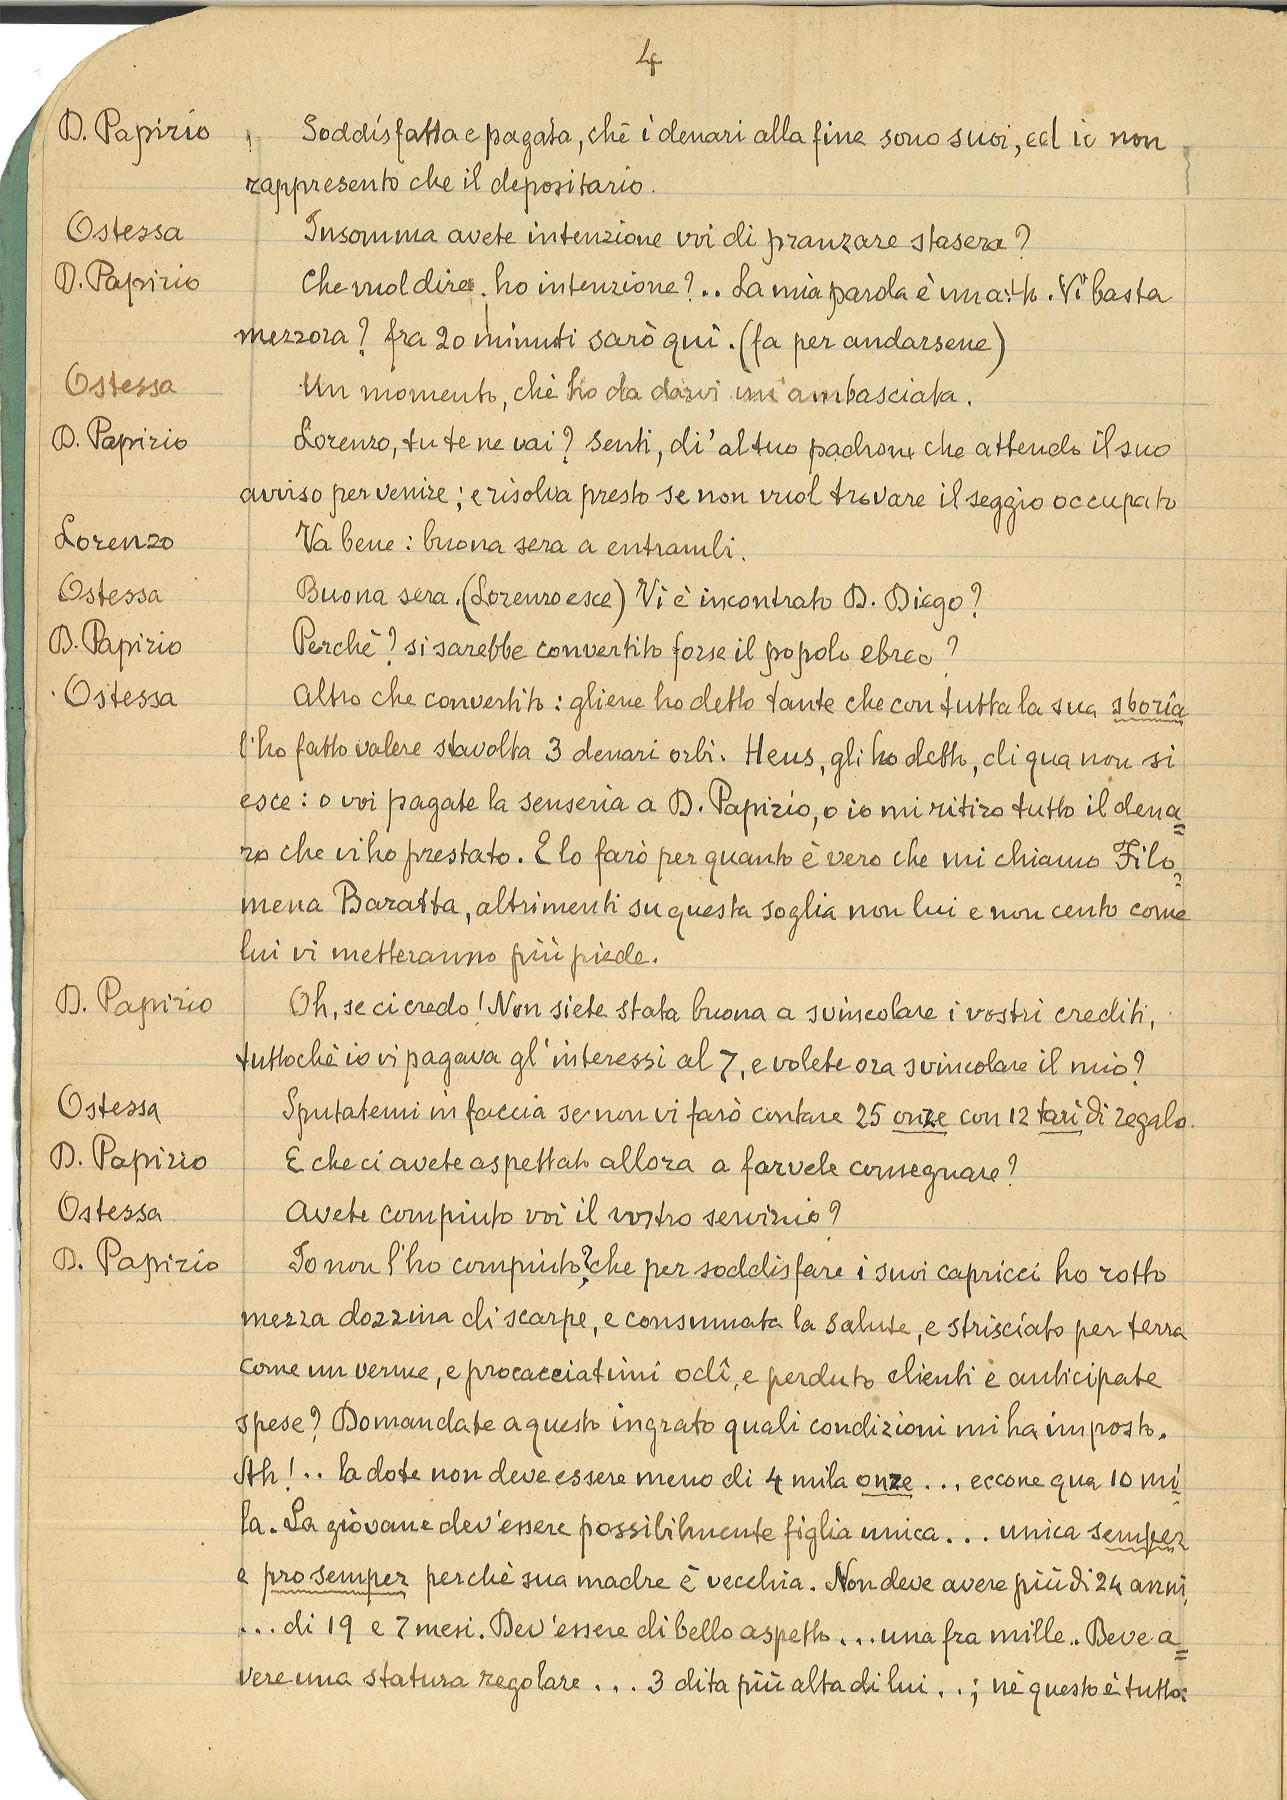 4
D. Papirio Soddisfatta e pagata, chè i denari alla fine sono suoi, ed io non
rappresento che il depositario.
Ostessa Insomma avete intenzione voi di pranzare stasera?
D. Papirio Che vuol dire ho intenzione?.. La mia parola è un atto. Vi basta
mezzora? fra 20 minuti sarò quì. (fa per andarsene)
Ostessa Un momento, chè ho da darvi un'ambasciata.
D. Papirio Lorenzo, tu te ne vai? Senti, di' al tuo padrone che attendo il suo
avviso per venire; e risolva presto se non vuol trovare il seggio occupato
Lorenzo Va bene: buona sera a entrambi.
Ostessa Buona sera. (Lorenzo esce) Vi è incontrato D. Diego?
D. Papirio Perchè? si sarebbe convertito forse il popolo ebreo?
Ostessa Altro che convertito: gliene ho detto tante che con tutta la sua sborîa
l'ho fatto valere stavolta 3 denari orbi. Heus, gli ho detto, di qua non si
esce: o voi pagate la senseria a D. Papirio, o io mi ritiro tutto il dena=
ro che vi ho prestato. E lo farò per quanto è vero che mi chiamo Filo=
mena Baratta, altrimenti su questa soglia non lui e non cento come
lui vi metteranno più piede.
D. Papirio Oh, se ci credo! Non siete stata buona a svincolare i vostri crediti,
tuttochè io vi pagava gl'interessi al 7, e volete ora svincolare il mio?
Ostessa Sputatemi in faccia se non vi farò contare 25 onze con 12 tarì di regalo.
D. Papirio E che ci avete aspettato allora a farvele consegnare?
Ostessa Avete compiuto voi il vostro servizio?
D. Papirio Io non l'ho compiuto? che per soddisfare i suoi capricci ho rotto
mezza dozzina di scarpe, e consumata la salute, e strisciato per terra
come un verme, e procacciatimi odî, e perduto clienti e anticipate
spese? Domandate a questo ingrato quali condizioni mi ha imposto.
Ah!.. la dote non deve essere meno di 4 mila onze ... eccone qua 10 mi=
la. La giovane dev'essere possibilmente figlia unica... unica semper
e pro semper perchè sua madre è vecchia. Non deve avere più di 24 anni
... di 19 e 7 mesi. Dev'essere di bello aspetto... una fra mille.. Deve a=
vere una statura regolare... 3 dita più alta di lui..; nè questo è tutto: